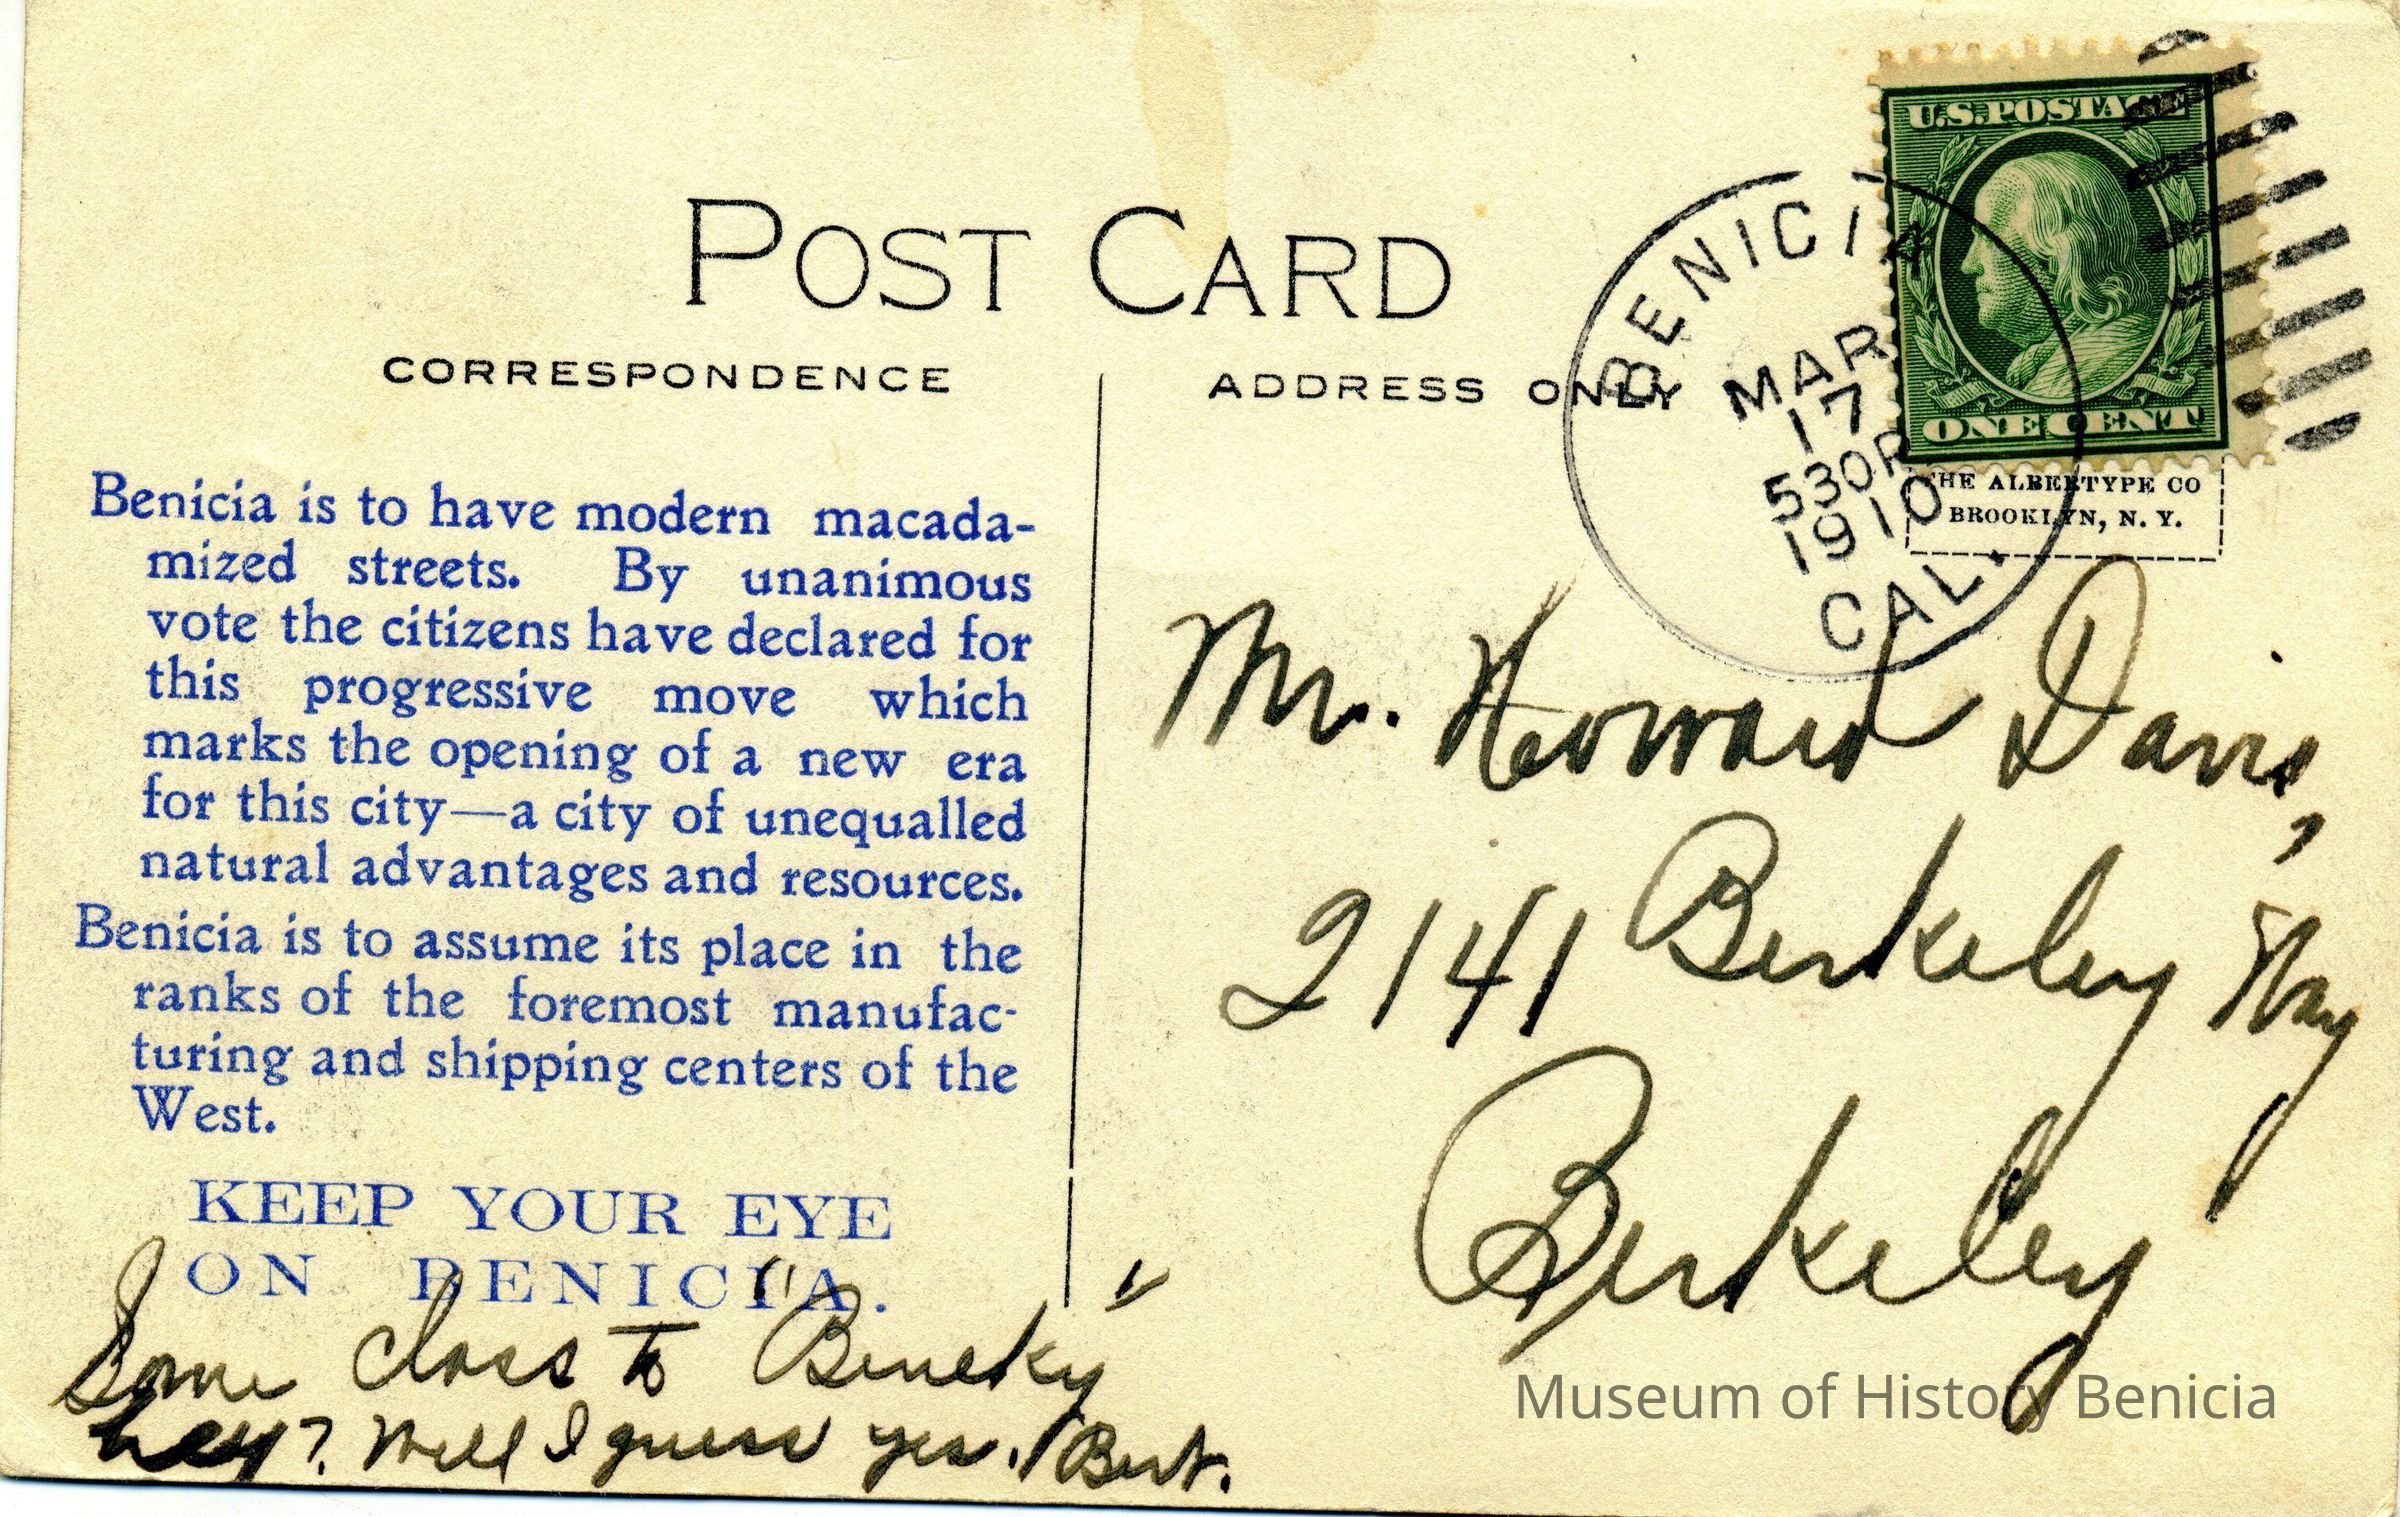 POST CARD
CORRESPONDENCE
ADDRESS ONLY
U.S. POSTAGE
ONE CENT
BENICIA
MAR
17
530P
1910
CAL.
THE ALBERTYPE CO
BROOKLYN, N. Y.
Benicia is to have modern macada-
mized streets. By unanimous
vote the citizens have declared for
this progressive move which
marks the opening of a new era
for this city—a city of unequalled
natural advantages and resources.
Benicia is to assume its place in the
ranks of the foremost manufac-
turing and shipping centers of the
West.
KEEP YOUR EYE
ON BENICIA.
Some class to "Beneky"
hey? Well I guess yes. Bert.
Mr. Howard Davis,
2141 Berkeley Way
Berkeley
Museum of History Benicia